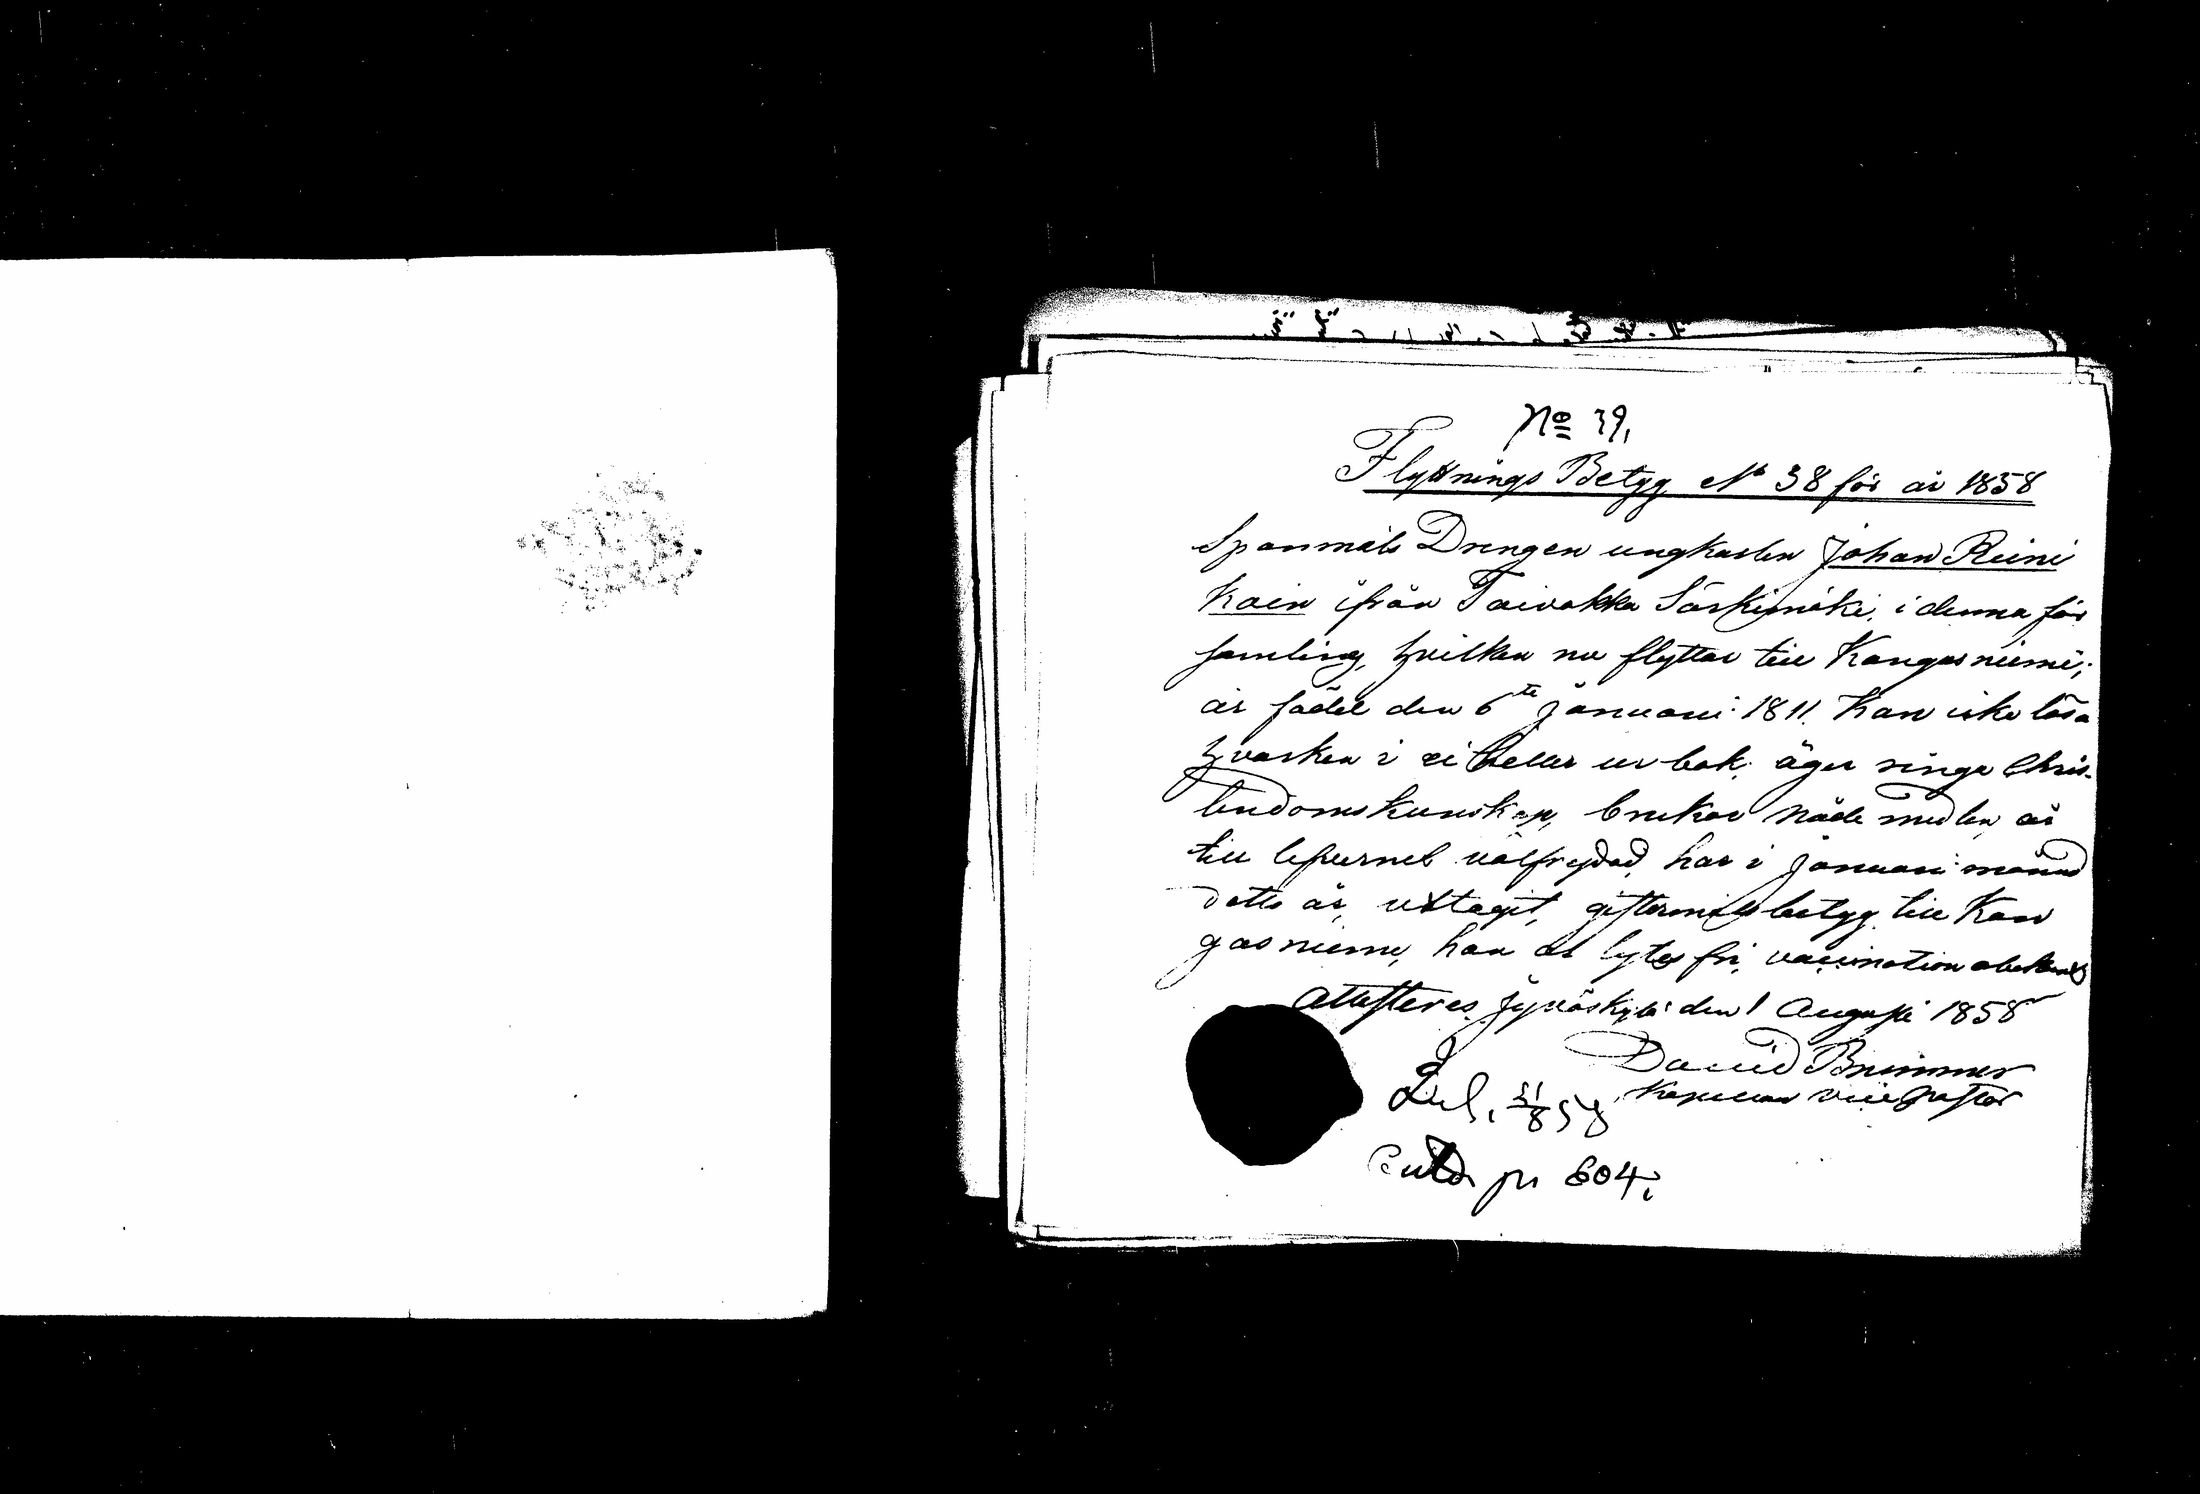 No 39,
Flyttnings Betyg No 38 för år 1858
Spanmåls Drengen ungkarlen Johan Reini
kain ifrån Toivakka Särkimäki, i denna för
samling, hvilken nu flyttar till Kangasniemi;
är född den 6te Januari 1811. Kan icke läsa
hvarken i eller ur bok, äger ringa Chris-
tendomskunskap, brukar Nåde medlen, är
till lefvernet välfrejdad, har i Januari månad
detta år, uttagit, giftermåls betyg till Kan
gasniemi, han är lytes fri, vaccination obekant
attesteras. Jyväskylä den 1 Augusti 1858
David Brummer
Kapellan vice Pastor
8 58
pr 604.